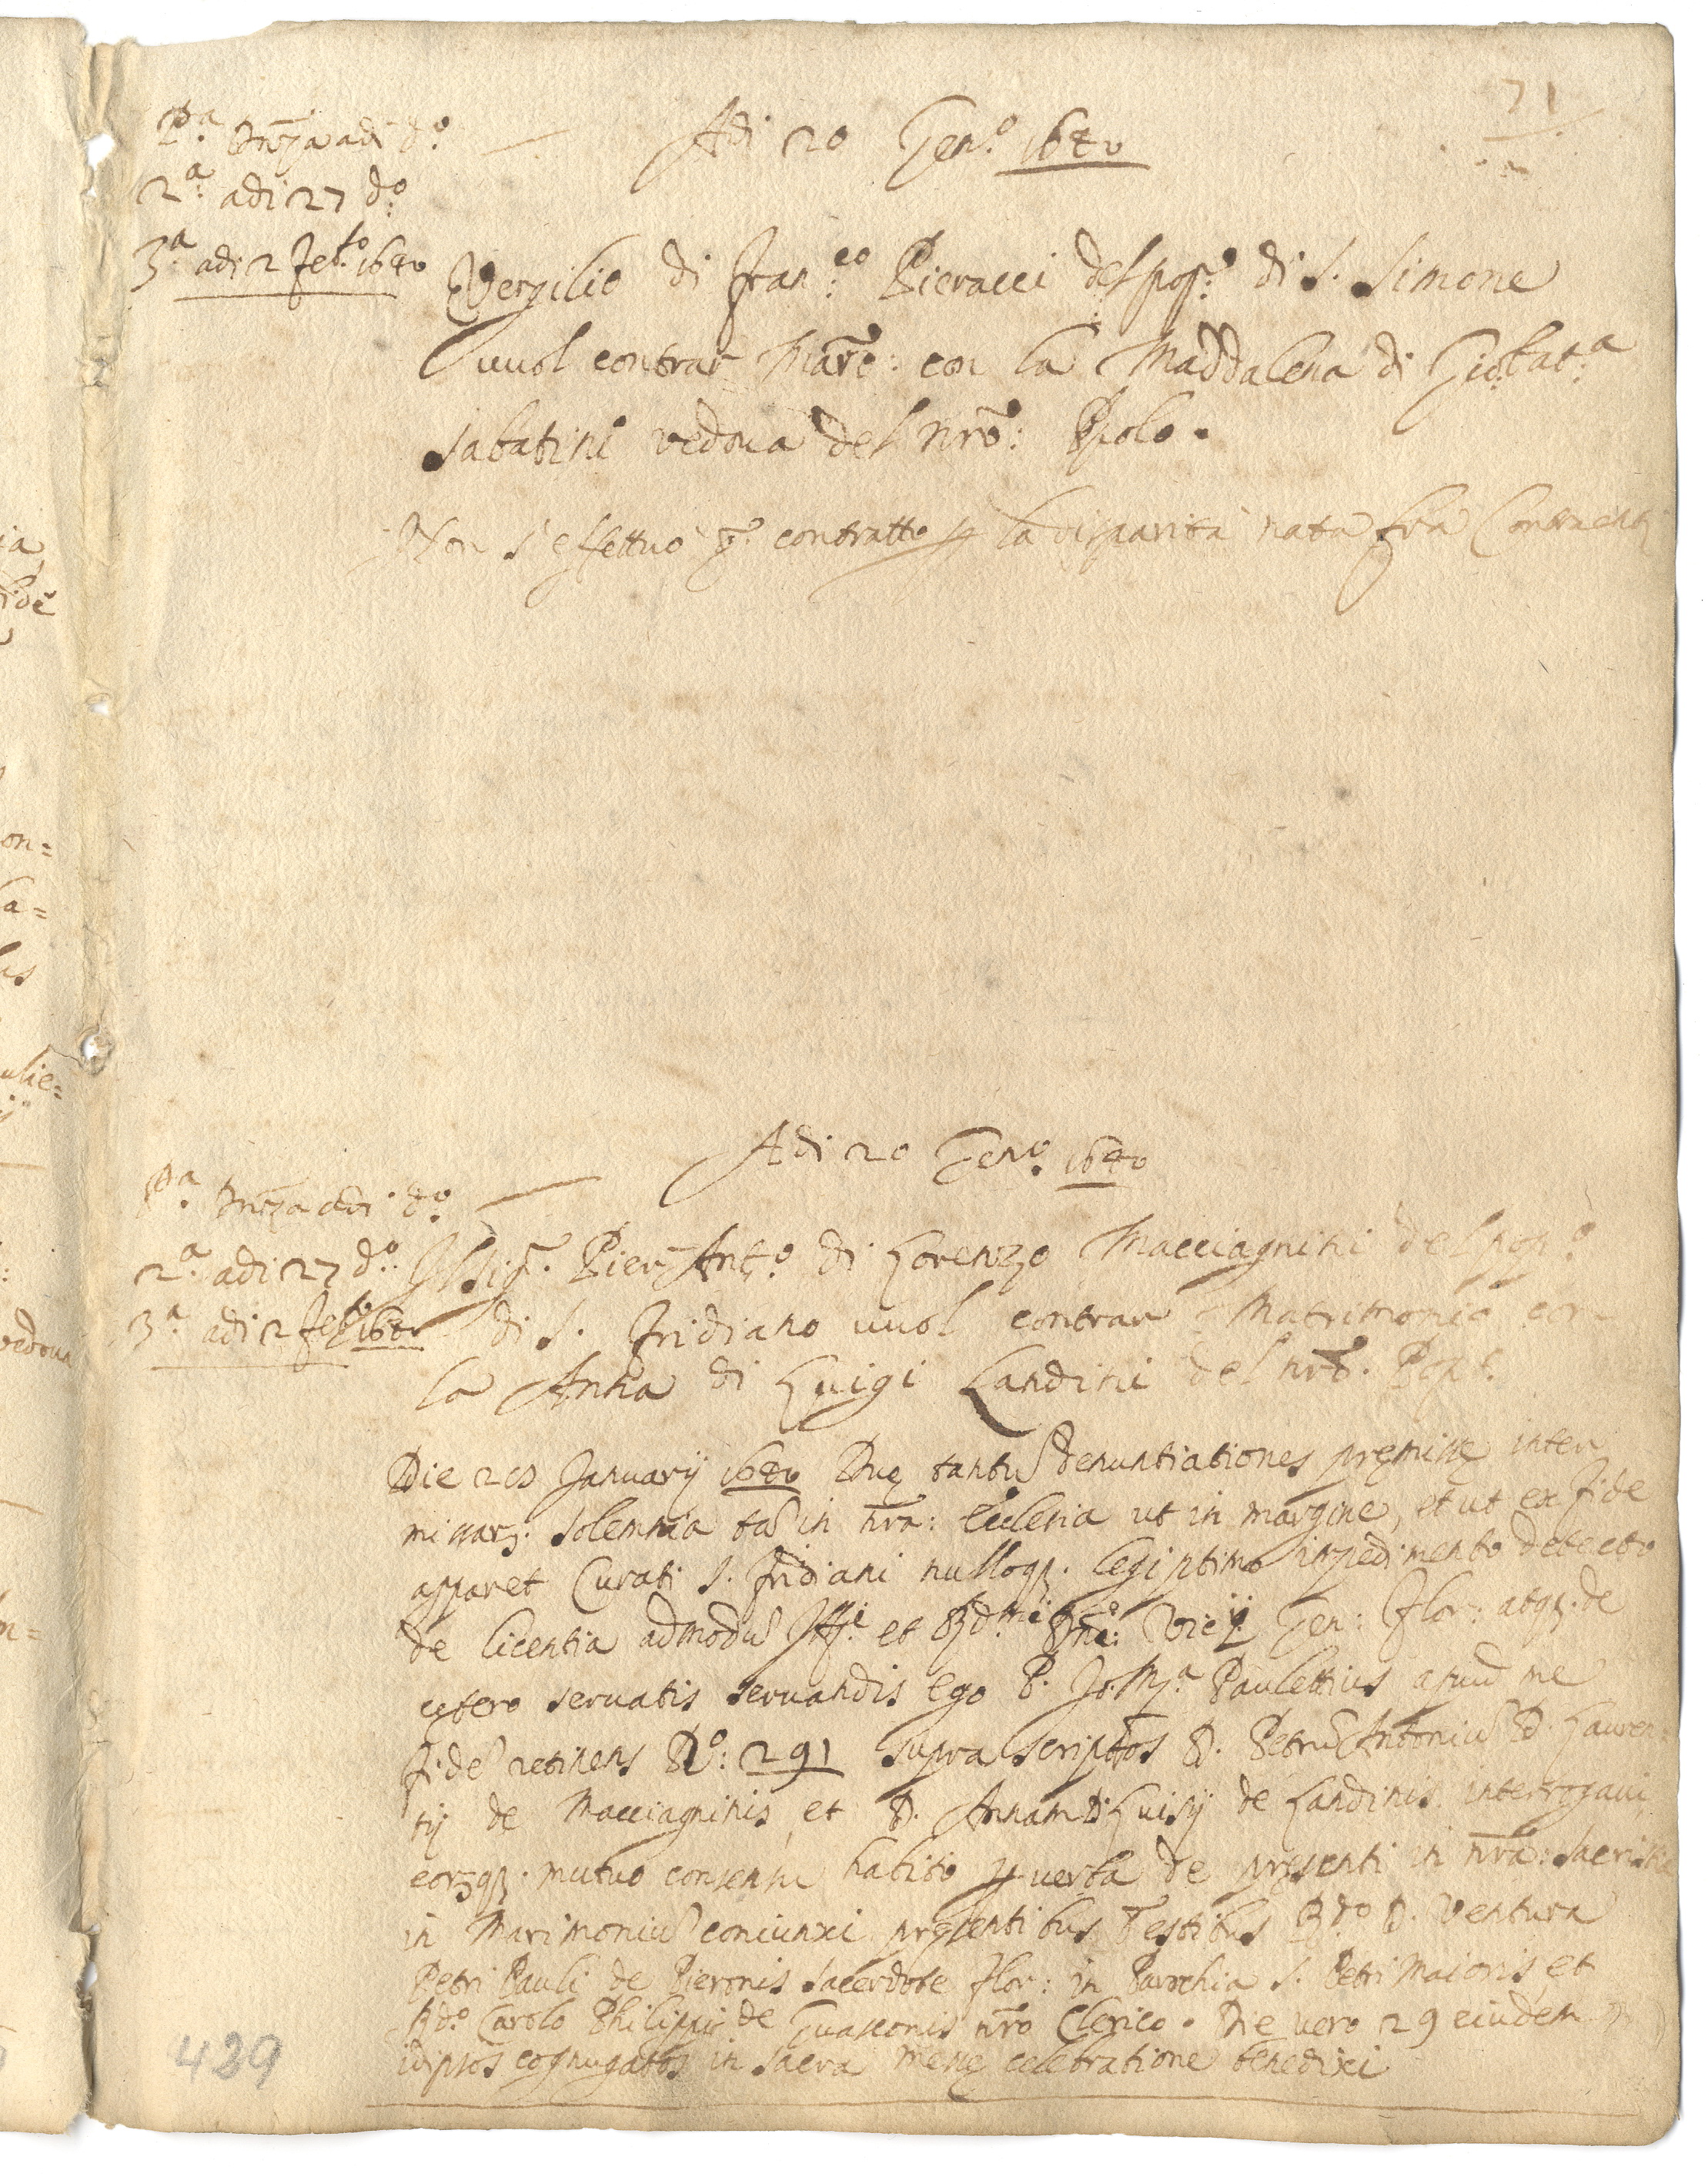 71
P.ª Dnza adi d.º
2.ª adi 27 d.º
3.ª adi 2 Feb.º 1640
Adi 20 Gen.º 1640
Vergilio di Fran.co Pieracci del pop.º di S. Simone
vuol contrar Mãre: con la Maddalena di Giobat.ª
Sabatini vedova del nrõ: Polo.
Non s'effettuò q.º contratto p la disparità nata fra Contraenti
Adi 20 Gen.º 1640
P.ª Dnza adi d.º
2.ª adi 27 d.º
3.ª adi 2 Feb.º 1640
Il Sig.r Pier Ant.º di Lorenzo Macciagnini del pop.º
di S. Fridiano vuol contrar Matrimonio con
la Anna di Luigi Landini del nrõ. Pop.
Die 28 Januarij 1640 Due tantũ denuntiationes premisse inter
missarz. solemnia in nrã: Ecclesia ut in margine, et ut ex fide
apparet Curati S. Fridiani nulloqz. legiptimo inpedimento detecto
de licentia admodũ Ill.i et R.d.mi Dni: Vic.ij Gen: Flor: atqz. de
cetero servatis servandis Ego P. Jo. M.ª Paulettius apud me
fidẽ retinens N.º: 291 supra scriptos D. Petrũ Antoniũ D. Lauren:
tij de Macciagninis, et D. Annam D. Luisij de Landinis interrogavi
eorzqz. mutuo consensu habito p verba de presenti in nrã: sacristia
in Marimoniũ coniunxi presentibus Testibus R.do D. Ventura
Petri Pauli de Pieronis sacerdote Flor: in Parochia S. Petri Maioris, et
R.do Carolo Philippi de Guasconis nrõ Clerico. Die vero 29 eiusdem
idipsos cognugatos in sacra Messe celebratione benedixi
439